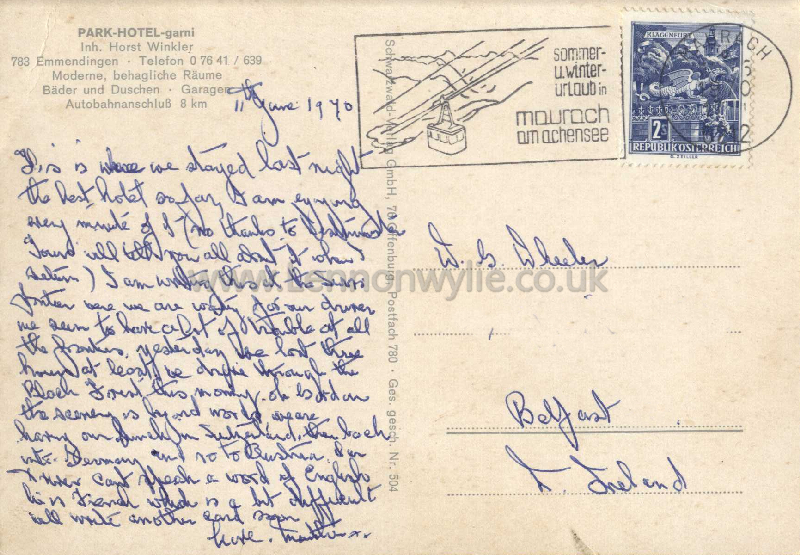 PARK-HOTEL-garni
Inh. Horst Winkler
783 Emmendingen · Telefon 0 76 41 / 639
Moderne, behagliche Räume
Bäder und Duschen · Garagen
Autobahnanschluß 8 km
11th June 1970
This is where we stayed last night
the best hotel so far I am enjoying
every minute of it (no thanks to
Tours will tell you all about it when I
return) I am writing this at the Swiss
frontier were we are waiting for our driver
we seem to have a lot of trouble at all
the frontiers, yesterday we lost three
hours at least, we drove through the
Black Forest this morning oh Gordon
the scenery is beyond words we are
having our lunch in Switzerland, then back
into Germany and so to Austria. Our
driver cant speak a word of English
he is French which is a bit difficult
will write another card soon
love.
Schwarzwald-Verlag GmbH, 76 Offenburg, Postfach 780 · Ges. gesch. Nr. 504
sommer-
u. winter-
urlaub in
maurach
am achensee
KLAGENFURT
2S
REPUBLIK ÖSTERREICH
W G Wheeler
Belfast
N. Ireland
www.Lennonwylie.co.uk